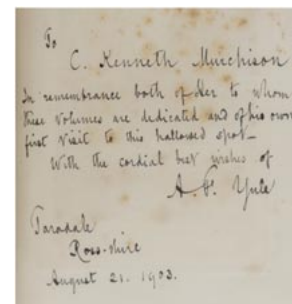 To
C. Kenneth Murchison
In remembrance both of Her to whom
these volumes are dedicated and of his own
first visit to this hallowed spot—
With the cordial best wishes of
A. F. Yule
Taradale
Ross-shire
August 21. 1903.